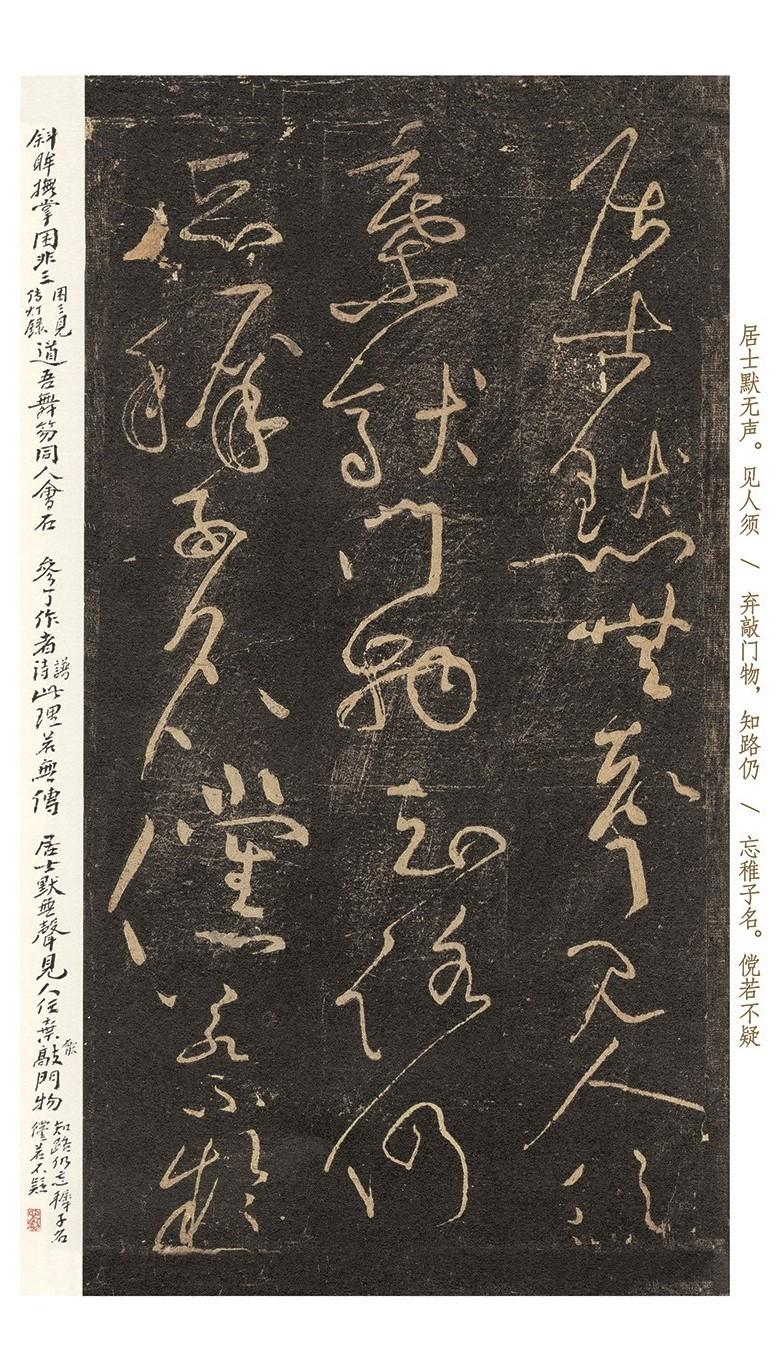 居士默无声。见人须 \ 弃敲门物，知路仍 \ 忘稚子名。傥若不疑
居士默無聲見人須
棄敲門物知路仍
忘穉子名儻若不疑
斜眸撫掌 非三 三見传灯録 道吾舞笏同人會石 參丁作者诗 此理若無傳 居士默無聲見人任棄敲門物 知路仍忘穉子名儻若不疑